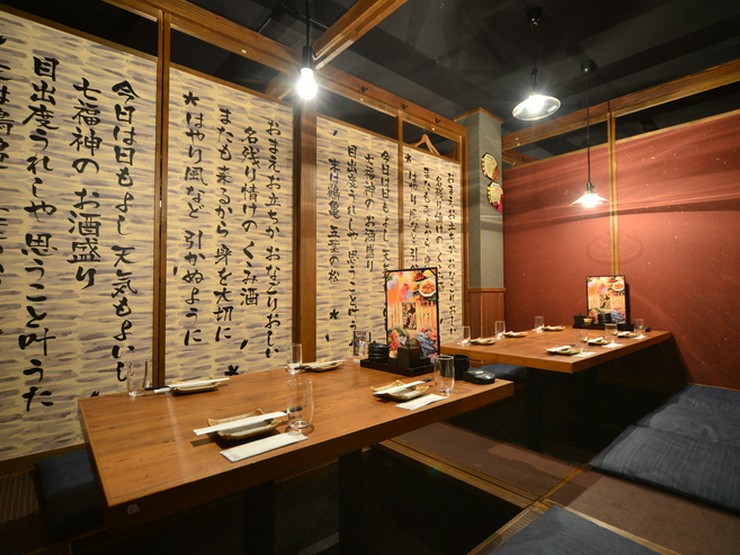 おまえお立ちか お
名残り情けの
またも来るから 身を
*はやり風など 引
今日は日もよし 天
七福神の お酒盛り
目出度うれしや 思うこと叶う
末は鶴亀 五葉の松 *
おまえお立ちか おなごりおしい
名残り情けの くくみ酒
またも来るから 身を大切に
*はやり風など 引かぬように
今日は日もよし 天気もよいし
七福神の お酒盛り
目出度うれしや 思うこと叶うた
末は鶴亀